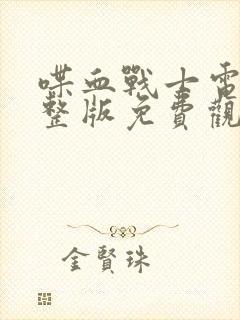 喋血戰士電
整版免費觀
金賢珠